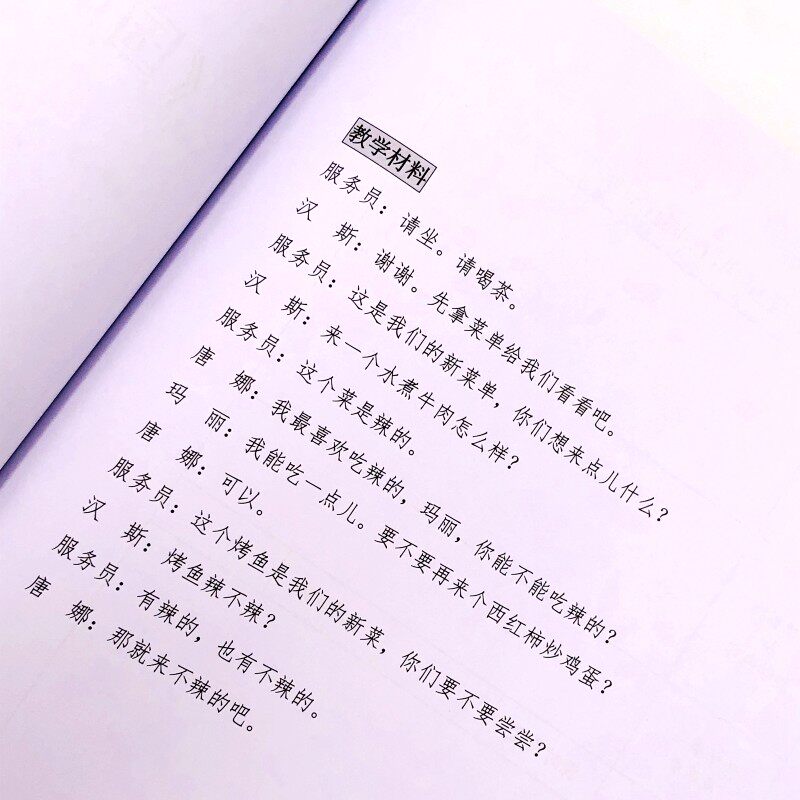 教学材料
服务员：请坐。请喝茶。
汉　斯：谢谢。先拿菜单给我们看看吧。
服务员：这是我们的新菜单，你们想来点儿什么？
汉　斯：来一个水煮牛肉怎么样？
服务员：这个菜是辣的。
唐　娜：我最喜欢吃辣的，玛丽，你能不能吃辣的？
玛　丽：我能吃一点儿。要不要再来个西红柿炒鸡蛋？
唐　娜：可以。
服务员：这个烤鱼是我们的新菜，你们要不要尝尝？
汉　斯：烤鱼辣不辣？
服务员：有辣的，也有不辣的。
唐　娜：那就来不辣的吧。